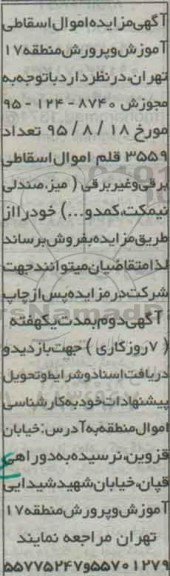 آگهی مزایده اموال اسقاطی
آموزش وپرورش منطقه ۱۷
تهران، درنظر دارد باتوجه به
مجوزش ۸۷۴۰ - ۱۲۴ - ۹۵
مورخ ۱۸ / ۸ / ۹۵ تعداد
۳۵۵۹ قلم اموال اسقاطی
برقی وغیربرقی ( میز، صندلی
نیمکت، کمدو...) خود را از
طریق مزایده بفروش برساند
لذا متقاضیان میتوانند جهت
شرکت در مزایده پس از چاپ
آگهی دوم بمدت یکهفته
( ۷ روز کاری ) جهت بازدید و
دریافت اسناد وشرایط وتحویل
پیشنهادات خود به کارشناسی
اموال منطقه به آدرس: خیابان
قزوین، نرسیده به دوراهی
قپان، خیابان شهید شیدایی
آموزش وپرورش منطقه ۱۷
تهران مراجعه نمایند
۵۵۷۰۱۲۷۹ و ۵۵۷۷۵۲۴۷